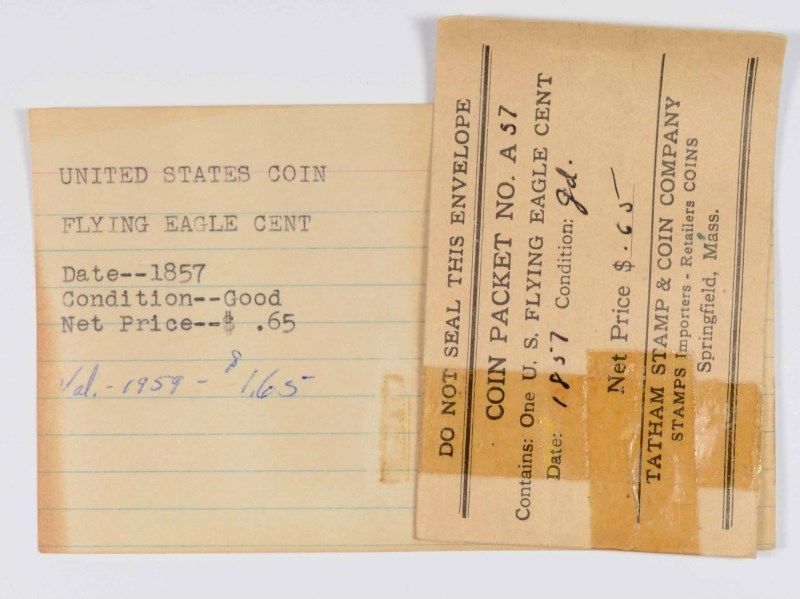 UNITED STATES COIN
FLYING EAGLE CENT
Date--1857
Condition--Good
Net Price--$ .65
Val. - 1959 - $1.65
DO NOT SEAL THIS ENVELOPE
COIN PACKET NO. A 57
Contains: One U. S. FLYING EAGLE CENT
Date: 1857 Condition: gd.
Net Price $ .65
TATHAM STAMP & COIN COMPANY
STAMPS Importers - Retailers COINS
Springfield, Mass.